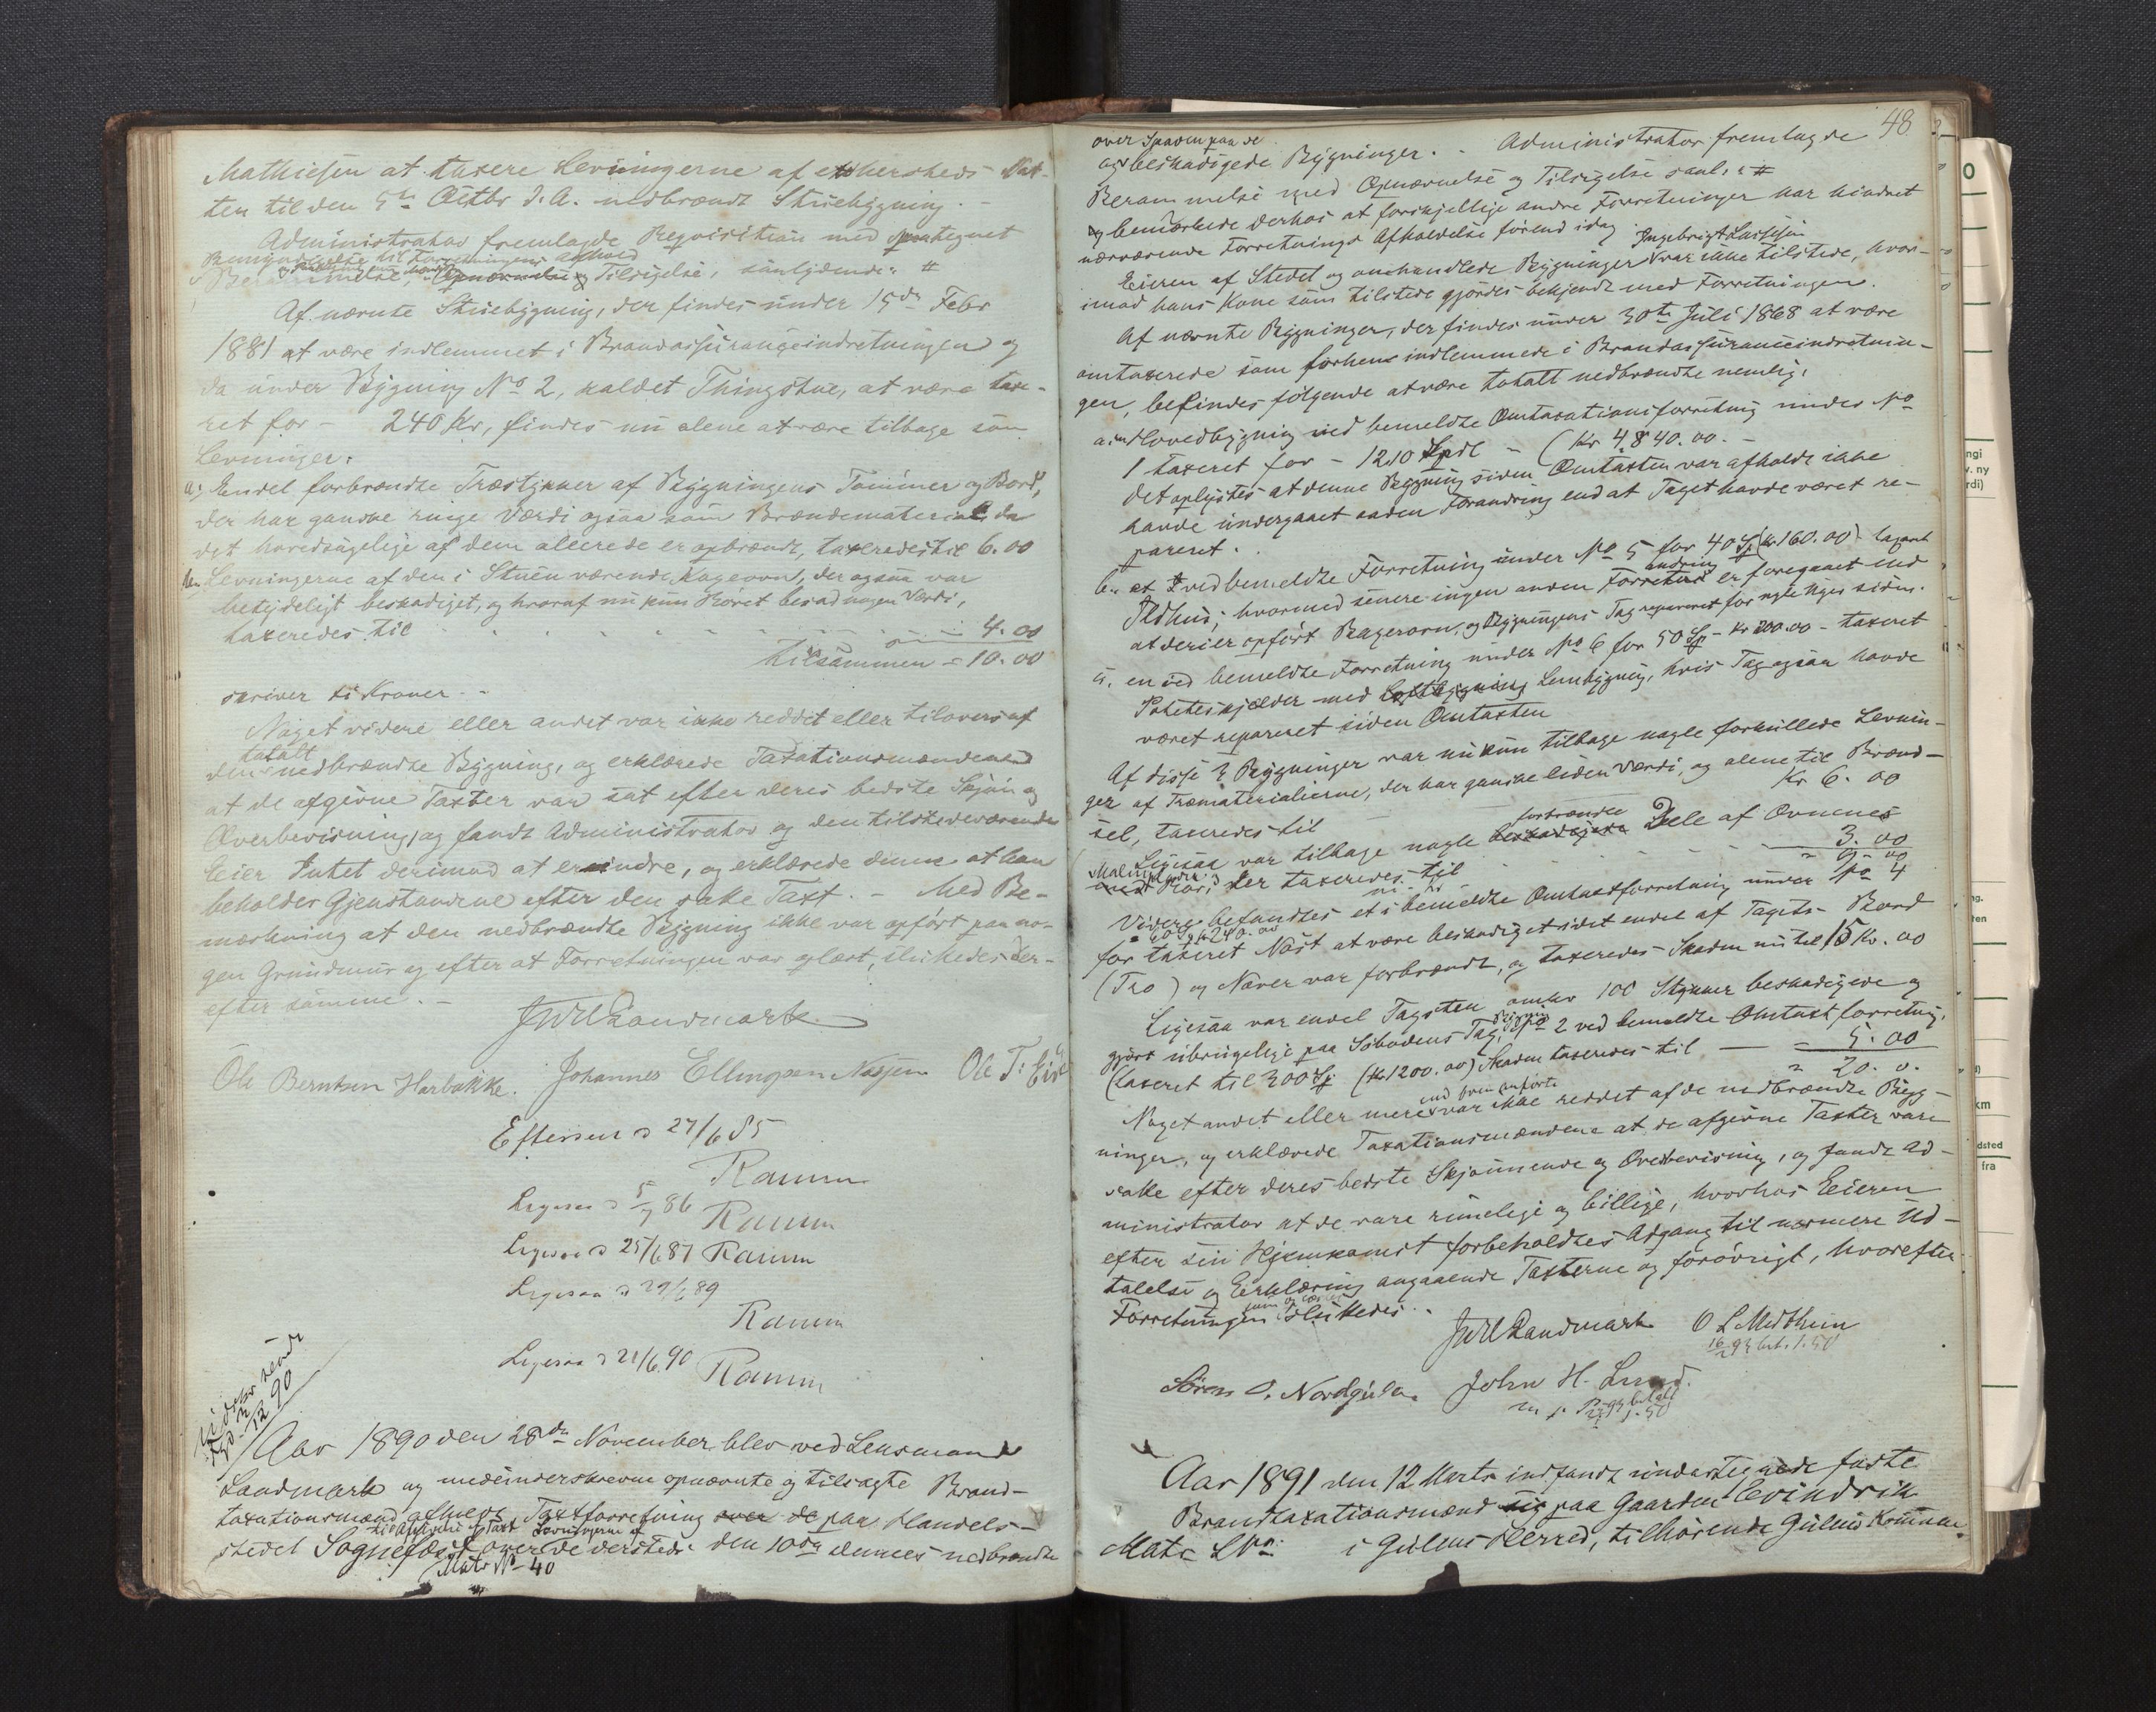 Mathiesen at taxere Levningerne af etthersteds Nat-
ten til den 5te Octbr d. A. nedbrændt Stuebygning. -
Administrator fremlagde Requisition med paategnet
Bemyndigelse til Forretningens Afhold
Berammelse, Opnævnelse & Tilsigelse, saalydende: #
Af nævnte Stuebygning, der findes under 15de Febr
1881 at være indlemmet i Brandassuranceindretningen og
da under Bygning No 2, kaldet Thingstue, at være taxe-
ret for - 240 Kr, findes nu alene at være tilbage som
Levninger:
a: Endel forbrændte Træstykker af Bygningens Tømmer og Bord,
der har ganske ringe Værdi ogsaa som Brændemateriale, da
det hovedsagelige af dem allerede er opbrændt, taxeredes til 6.00
b. Levningerne af den i Stuen værende Kageovn, der ogsaa var
betydeligt beskadiget, og hvoraf nu kun Røret besad nogen Værdi,
taxeredes til - - - - - - - 4.00
tilsammen = 10.00
skriver ti Kroner - -
Noget videre eller andet var ikke reddet eller tilovers af
totalt
den nedbrændte Bygning, og erklærede Taxationsmændene
at de afgivne Taxter var sat efter deres bedste Skjøn og
Overbevisning, og fandt Administrator og den tilstedeværende
Eier Intet derimod at erindre, og erklærede denne at han
beholder Gjenstandene efter den satte Taxt. - Med Be-
mærkning at den nedbrændte Bygning ikke var opført paa no-
gen Grundmur og efter at Forretningen var oplæst, sluttedes der-
efter samme. -
JWLandmark
Ole Berntsen Harbakke. Johannes Ellingsen Nasjen Ole T: Eide
Efterseet d 27/6 85
Ramm
Ligesaa d 5/7 86 Ramm
Ligesaa d 25/6 87 Ramm
Ligesaa d 29/6 89
Ramm
Ligesaa d 21/6 90 Ramm
Udskr. sendt
12 90
Aar 1890 den 28de November blev ved Lensmand
Landmark og medunderskrevne opnævnte og tilsagte Brand-
taxationsmænd afholdt Taxtforretning over de paa Handels-
til Afgivelse af Taxt Levningerne af
stedet Sognefæst over de dersteds den 10de dennes nedbrændte
Matr No 40
48
over Skaden paa de
og beskadigede Bygninger. - Administrator fremlagde
Berammelse med Opnævnelse og Tilsigelse saal.: #
og bemærkede derhos at forskjellige andre Forretninger har hindret
nærværende Forretnings Afholdelse førend idag
Ingebrigt Lassesen
Eieren af Stedet og omhandlede Bygninger var ikke tilstede, hvor-
imod hans Kone som tilstede gjordes bekjendt med Forretningen.
Af nævnte Bygninger, der findes under 30te Juli 1868 at være
omtaxerede som forhen indlemmede i Brandassuranceindretnin-
gen, befindes følgende at være totalt nedbrændte nemlig:
a. en Hovedbygning ved bemeldte Omtaxationsforretning under No
1 taxeret for - 1210 Spdl - (Kr 4,840.00. -
Det oplystes at denne Bygning siden Omtaxten var afholdt ikke
havde undergaaet anden Forandring end at Taget havde været re-
pareret.
b. et ved bemeldte Forretning under No 5 for 40 Sp (Kr 160.00) taxeret
Ildhus; hvormed senere ingen anden Forandring er foregaaet end
at deri er opført Bagerovn, og Bygningens Tag repareret for nogle Uger siden.
c. en ved bemeldte Forretning under No 6 for 50 Sp - Kr 200.00 - taxeret
Poteteskjælder med Loftbygning Lembygning, hvis Tag ogsaa havde
været repareret siden Omtaxten
Af disse 3 Bygninger var nu kun tilbage nogle forkullede Levnin-
ger af Træmaterialierne, der har ganske liden Værdi, og alene til Brænd-
sel, taxeredes til - Kr 6.00
forbrændte
Ligesaa var tilbage nogle beskadigede Dele af Ovnenes
Rør, der taxeredes til - - - - - 3.00
ni Kr " 9.00
Videre befandtes et i bemeldte Omtaxtforretning under No 4
60 Sp Kr 240.00
for taxeret Nøst at være beskadiget idet endel af Tagets Bord
(Tro) og Næver var forbrændt, og taxeredes Skaden nu til 15 Kr. 00
Ligesaa var endel Tagsten omkr 100 Stykker beskadigede og
gjort ubrugelige paa Søbodens Tag, Bygning No 2 ved bemeldte Omtaxtforretning,
(taxeret til 300 Sp (Kr 1200.00) Skaden taxeredes til - = 5.00
" 20.0.
end foran anførte
Noget andet eller mere var ikke reddet af de nedbrændte Byg-
ninger, og erklærede Taxationsmændene at de afgivne Taxter vare
satte efter deres bedste Skjønnende og Overbevisning, og fandt Ad-
ministrator at de vare rimelige og billige, hvorhos Eieren
efter sin Hjemkomst forbeholdtes Adgang til nærmere Ud-
talelse og Erklæring angaaende Taxterne og forøvrigt, hvorefter
Forretningen sluttedes. -
JWLandmark O L Midthun
Søren O. Nordgulen John H. Lund.
Aar 1891 den 12 Marts indfandt undertegnede faste
Brandtaxationsmænd sig paa Gaarden Evindvik
Matr LNo i Gulens Herred, tilhørende Gulens Kommune